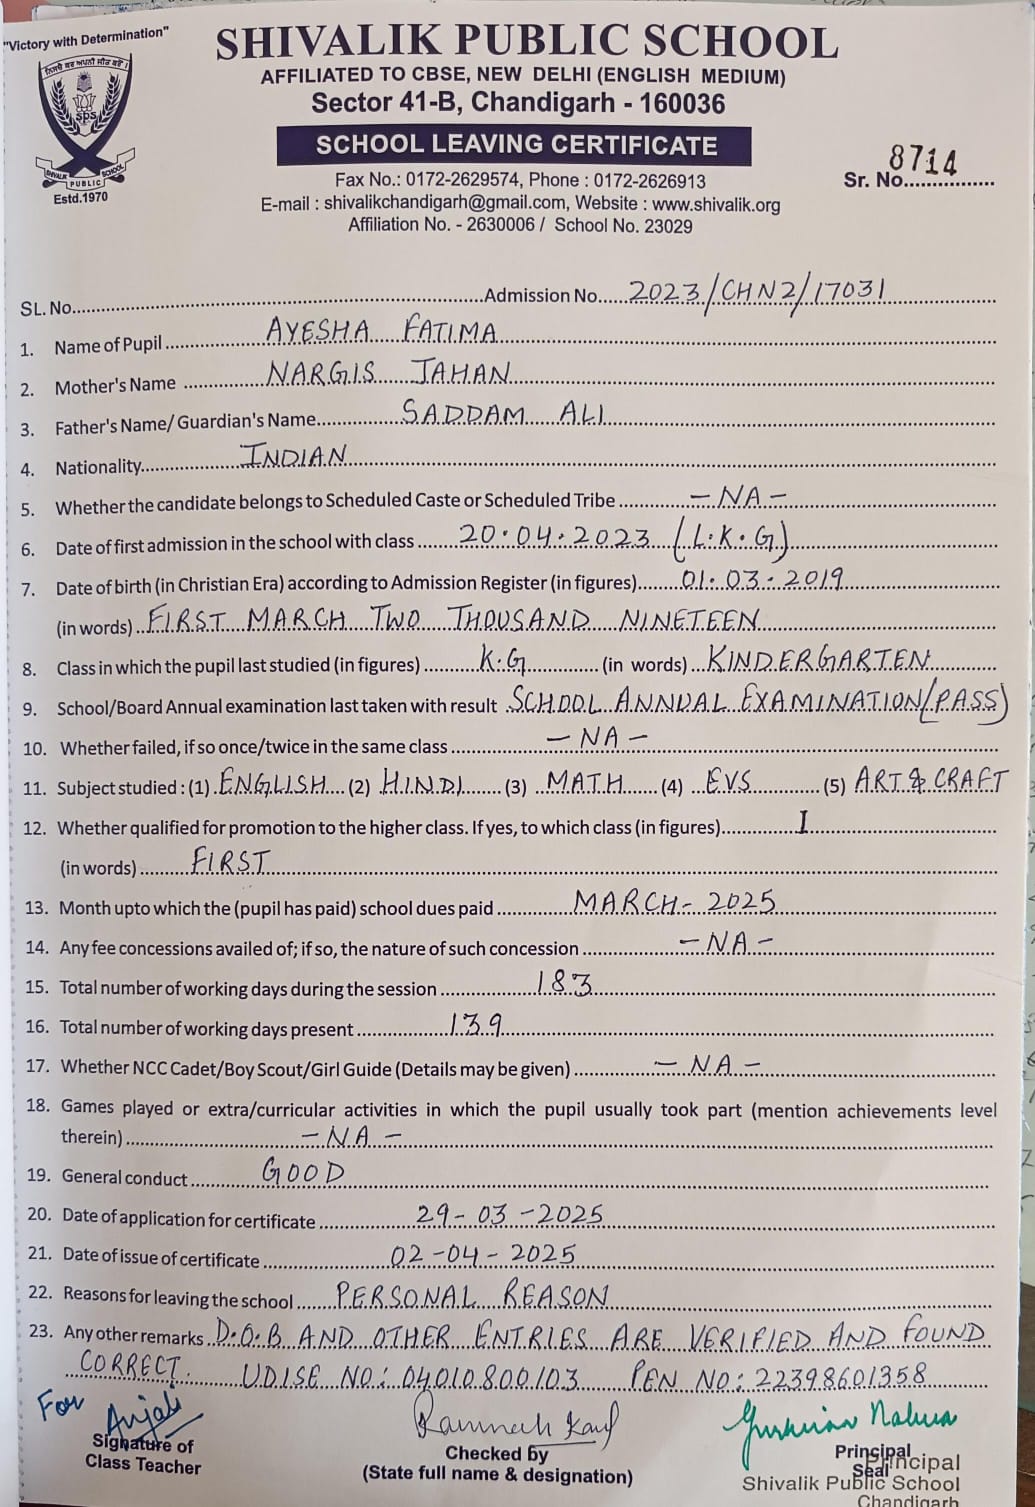 "Victory with Determination"
ਨਿਸਚੈ ਕਰ ਅਪਨੀ ਜੀਤ ਕਰੋਂ।
sps
SHIVALIK PUBLIC SCHOOL
Estd.1970
SHIVALIK PUBLIC SCHOOL
AFFILIATED TO CBSE, NEW DELHI (ENGLISH MEDIUM)
Sector 41-B, Chandigarh - 160036
SCHOOL LEAVING CERTIFICATE
Fax No.: 0172-2629574, Phone : 0172-2626913
E-mail : shivalikchandigarh@gmail.com, Website : www.shivalik.org
Affiliation No. - 2630006 / School No. 23029
Sr. No. 8714
SL. No. Admission No. 2023/CHN2/17031
1. Name of Pupil AYESHA FATIMA
2. Mother's Name NARGIS JAHAN
3. Father's Name/ Guardian's Name SADDAM ALI
4. Nationality INDIAN
5. Whether the candidate belongs to Scheduled Caste or Scheduled Tribe - NA -
6. Date of first admission in the school with class 20.04.2023 (L.K.G)
7. Date of birth (in Christian Era) according to Admission Register (in figures) 01.03.2019
(in words) FIRST MARCH TWO THOUSAND NINETEEN
8. Class in which the pupil last studied (in figures) K.G (in words) KINDERGARTEN
9. School/Board Annual examination last taken with result SCHOOL ANNUAL EXAMINATION (PASS)
10. Whether failed, if so once/twice in the same class - NA -
11. Subject studied : (1) ENGLISH (2) HINDI (3) MATH (4) EVS (5) ART & CRAFT
12. Whether qualified for promotion to the higher class. If yes, to which class (in figures) I
(in words) FIRST
13. Month upto which the (pupil has paid) school dues paid MARCH - 2025
14. Any fee concessions availed of; if so, the nature of such concession - NA -
15. Total number of working days during the session 183
16. Total number of working days present 139
17. Whether NCC Cadet/Boy Scout/Girl Guide (Details may be given) - NA -
18. Games played or extra/curricular activities in which the pupil usually took part (mention achievements level
therein) - NA -
19. General conduct GOOD
20. Date of application for certificate 29-03-2025
21. Date of issue of certificate 02-04-2025
22. Reasons for leaving the school PERSONAL REASON
23. Any other remarks D.O.B AND OTHER ENTRIES ARE VERIFIED AND FOUND
CORRECT. UDISE NO: 04010800103 PEN NO: 22398601358
For Anjali
Signature of
Class Teacher
Kaur
Checked by
(State full name & designation)
Principal
Seal
Principal
Shivalik Public School
Chandigarh